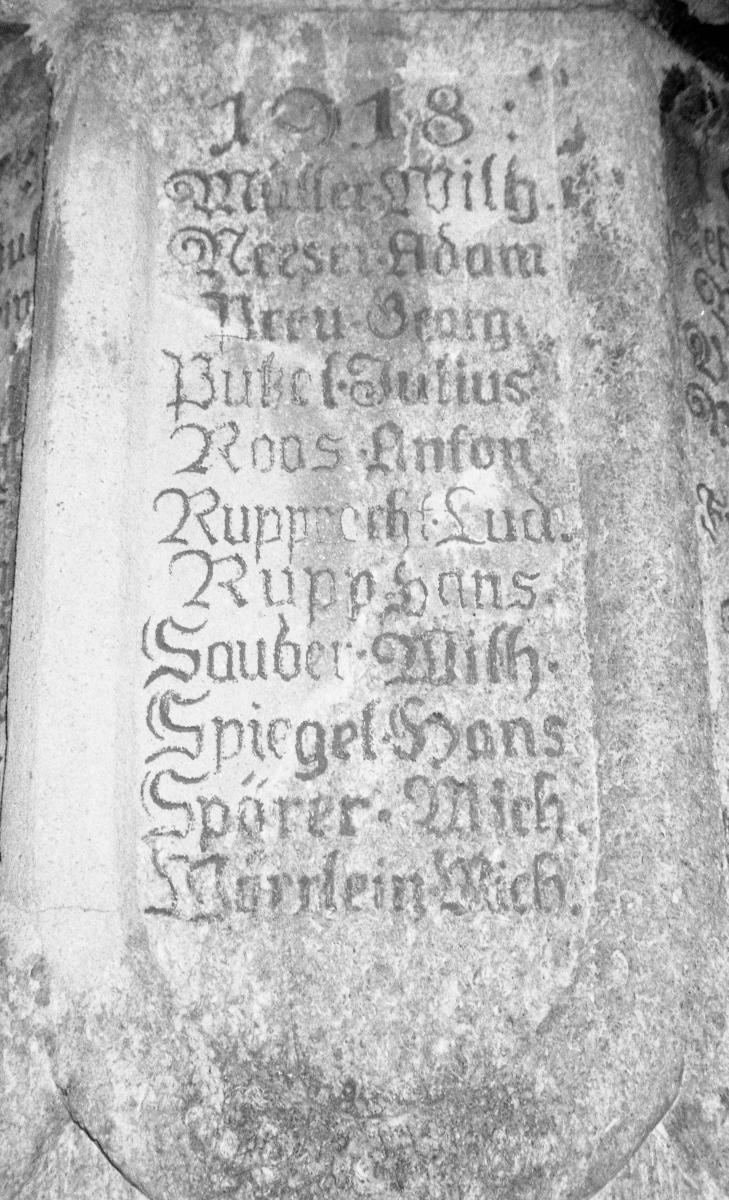 1918:
Müller·Wilh.
Neeser·Adam
Preu·Georg.
Pukel·Julius
Roos·Anton
Rupprecht·Lud.
Rupp Hans.
Sauber·Wilh.
Spiegel·Hans
Spörer·Mich.
Wörrlein·Mich.